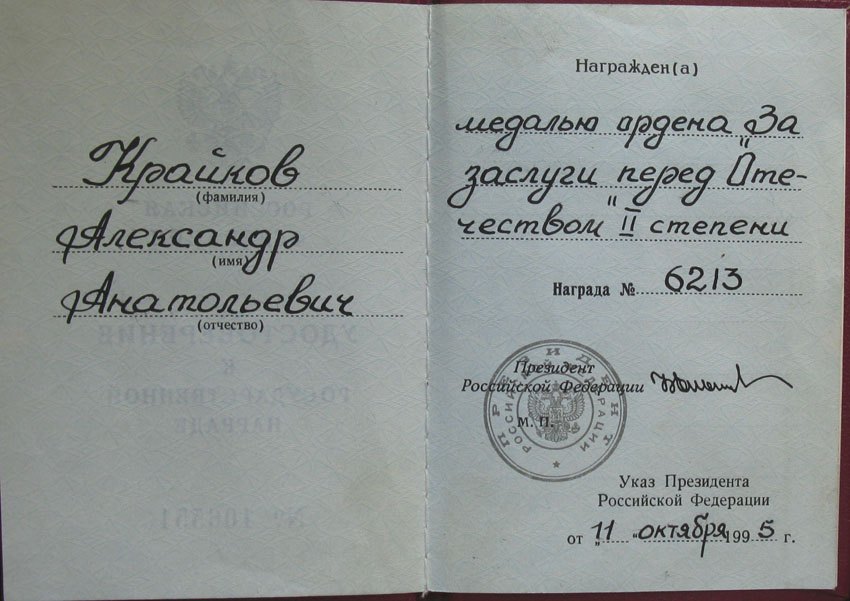 Крайнов
(фамилия)
Александр
(имя)
Анатольевич
(отчество)
Награжден(а)
медалью ордена „За
заслуги перед Оте-
чеством" II степени
Награда № 6213
Президент
Российской Федерации
м. п.
ПРЕЗИДЕНТ
РОССИЙСКОЙ ФЕДЕРАЦИИ
Указ Президента
Российской Федерации
от „11" октября 1995 г.